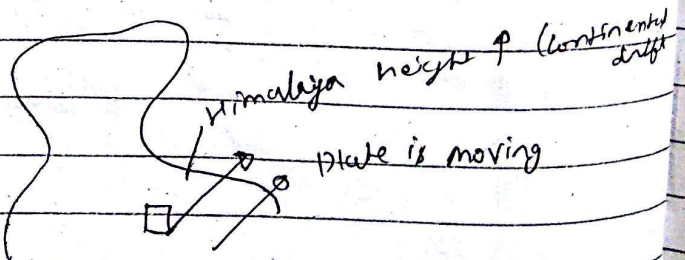 Himalaya height ↑ (continental
drift
Plate is moving